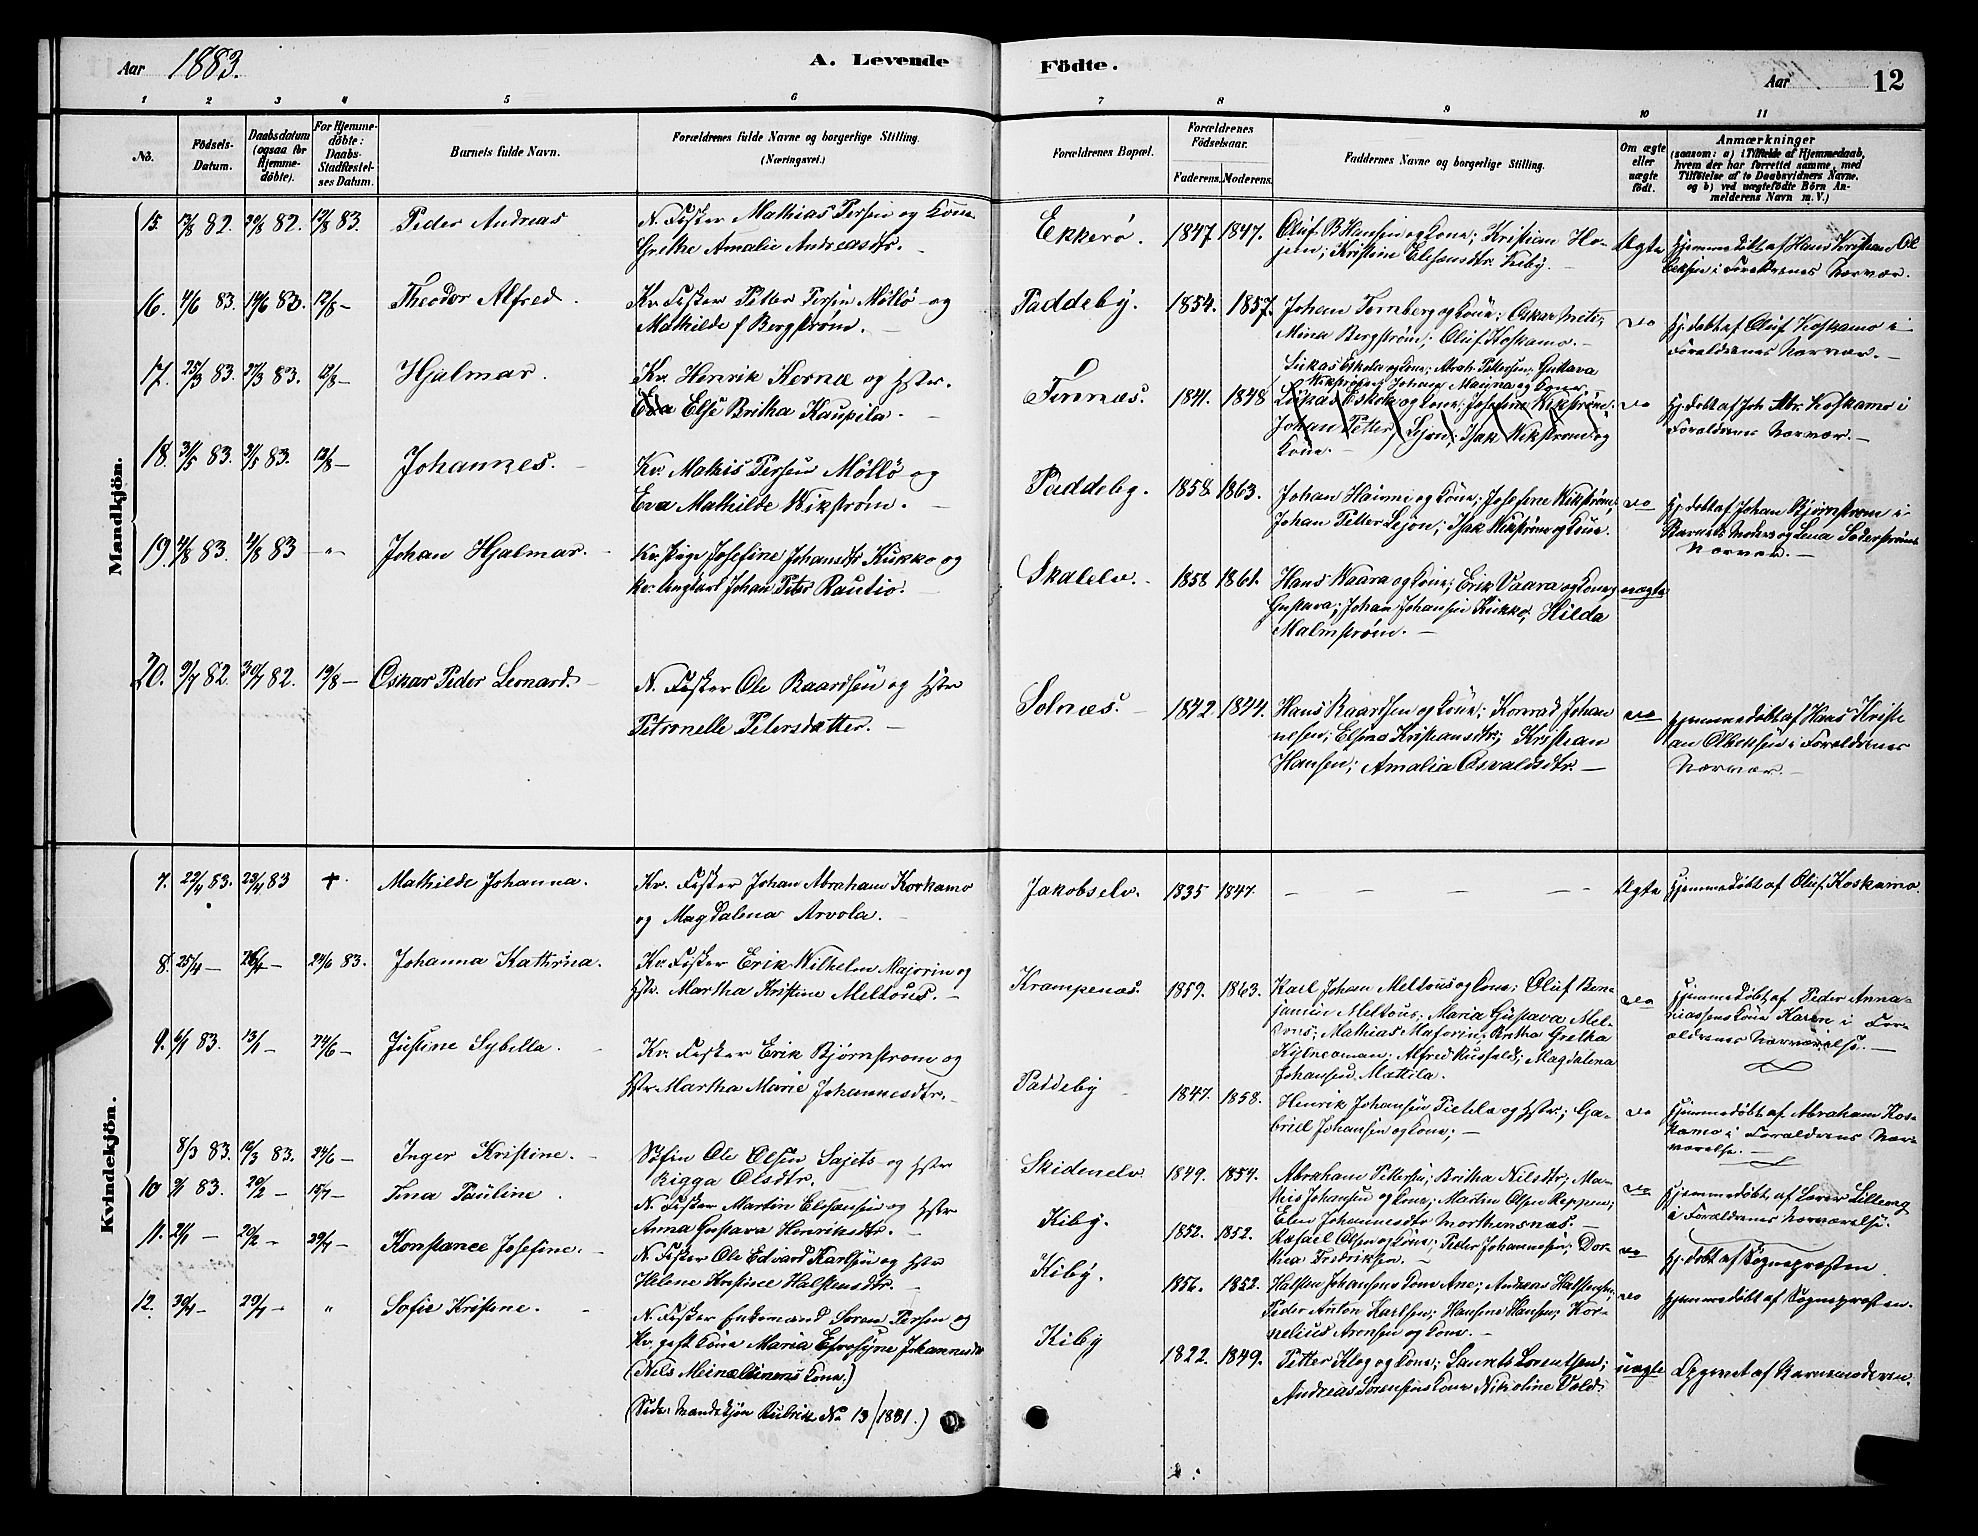 Aar 1883.
A. Levende Födte.
Aar 12
1 2 3 4 5 6 7 8 9 10 11
No.
Födsels-Datum.
Daabsdatum (ogsaa for Hjemme-döbte).
For Hjemme-döbte: Daabs-Stadfæstel-ses Datum.
Barnets fulde Navn.
Forældrenes fulde Navne og borgerlige Stilling.
(Næringsvei.)
Forældrenes Bopæl.
Forældrenes Födselsaar.
Faderens. Moderens.
Faddernes Navne og borgerlige Stilling.
Om ægte eller uægte födt.
Anmærkninger
(saasom: a) i Tilfælde af Hjemmedaab,
hvem der har forrettet samme, med
Tilföielse af to Daabsvidners Navne.
og b) ved uægtefödte Börn An-
melderens Navn m. V.)
Mandkjön.
15. 13/8 82. 20/8 82. 12/8 83. Peder Andreas
N. Fisker Mathias Persen og Kone
Grethe Amalie Andreasdtr.
Ekkerø. 1847 1847.
Oluf B. Hansen og Kone; Kristian Ho-
jen; Kristine Elesensdtr. Kiby.
Ægte
Hjemmedøbt af Hans Kristian Ol
beksen i Forældrenes Nærvær.
16. 4/6 83. 14/6 83. 12/8 — Theodor Alfred.
Kv. Fisker Petter Persen Møllø og
Mathilde f Bergstrøm.
Paddeby. 1854. 1857.
Johan Tornberg og Kone; Oskar
Mina Bergstrøm; Oluf Koskamo.
do
Hj.døbt af Oluf Koskamo i
Forældrenes Nærvær.
17. 25/3 83. 27/3 83. 12/8 — Hjalmar.
Kv. Henrik Kornæ og Hstr.
Eva Else Britha Kaupila.
Finnæs. 1841. 1848
Lukas Eskola og Kone; Abrah. Pettersen; Gustava
Wikstrøm; Johan Majna og Kone
Lukas Eskola og Kone; Josefine Wikstrøm;
Johan Petter Lejon; Isak Wikstrøm og
Kone.
do
Hj.døbt af Joh. Abr. Koskamo i
Forældrenes Nærvær.
18. 31/5 83. 31/5 83. 12/8 — Johannes.
Kv. Mathis Persen Møllø og
Eva Mathilde Wikstrøm.
Paddeby. 1858 1863.
Johan Haimi og Kone; Josefine Wikstrøm;
Johan Petter Lejon; Isak Wikstrøm og Kone.
do
Hj.døbt af Johan Bjørnstrøm i
Barnets Moders og Lena Søderstrøms
Nærvær.
19. 4/8 83. 4/8 83 — „ Johan Hjalmar.
Kv. Pige Josefine Johansdtr. Kukko og
Kv. Ungkarl Johan Peter Rautio.
Skalelv. 1858 1861.
Hans Waara og Kone; Erik Vaara og Kone
Gustava; Johan Johansen Kukko; Hilda
Malmstrøm.
uægte
20. 9/7 82. 30/7 82. 19/8 — Oskar Peder Leonard.
N. Fisker Ole Baardsen og Hstr
Petronelle Petersdatter.
Solnæs. 1842. 1844.
Hans Baardsen og Kone; Konrad Johan
nesen; Elsina Kristiansdtr; Kristian
Hansen; Amalia Osvaldsdtr.
do
Hjemmedøbt af Hans Kristi
an Olbeksen i Forældrenes
Nærvær.
Kvindekjön.
7. 22/4 83. 23/4 83 + Mathilde Johanna.
Kv. Fisker Johan Abraham Korkamo
og Magdalena Arvola.
Jakobselv. 1835 1847
Ægte
Hjemmedøbt af Oluf Koskamo
8. 25/4 — 26/4 — 24/6 83. Johanna Kathrina.
Kv. Fisker Erik Wilhelm Majorin og
Hstr. Martha Kristine Meltous.
Krampenæs. 1859. 1863.
Karl Johan Meltous og Kone; Oluf Ben-
jamin Meltous; Maria Gustava Mel-
tous; Mathias Majorin; Britha Gretha
Kylneoman; Alfred Rusfeldt; Magdalena
Johansen Mattila.
do
Hjemmedøbt af Peder Anna-
niassens Kone Karen i For-
ældrenes Nærværelse.
9. 6/1 83. 13/1 — 24/6 — Justine Sybella.
Kv. Fisker Erik Bjørnstrøm og
Hstr Martha Marie Johannesdtr.
Paddeby 1847. 1858.
Henrik Johansen Pietila og Hstr; Ga-
briel Johansen og Kone;
do
Hjemmedøbt af Abraham Kos-
kamo i Forældrens Nær-
værelse.
8/3 83. 10/3 83. 24/6 — Inger Kristine.
Søfin Ole Olsen Sajets og Hstr
Bigga Olsdtr.
Skidenelv 1849. 1854.
Abraham Pettersen; Britha Nilsdtr; Ma-
this Johansen og Kone; Martin Olsen Reppen;
Elen Johannesdtr Morthensnæs.
do
Hjemmedøbt af Lærer Lilleng
i Forældrenes Nærværelse.
10. 9/1 83. 20/2 — 15/7 — Tina Pauline.
N. Fisker Martin Elesensen og Hstr
Anna Gustava Henriksdtr.
Kiby. 1852. 1852.
Rafael Olsen og Kone; Peder Johannesen; Dor-
thea Fredriksen.
do
Hj.døbt af Sognepræsten.
11. 21/1 — 20/2 — 29/7 — Konstance Josefine.
N. Fisker Ole Edvard Karlsen og Hstr
Helene Kristine Halsensdtr.
Kiby. 1856. 1852.
Halsen Johansens Kone Ane; Andreas Halsensen;
Peder Anton Karlsen; Hansine Hansen; Kor-
nelius Arensen og Kone.
do
Hjemmedøbt af Sognepræsten.
12. 30/4 — 29/7 — „ Sofie Kristine.
N. Fisker Enkemand Søren Persen og
Kv. gift Kone Maria Efrosyne Johannesdtr
(Nils Meinelsinens Kone.)
(Vide: Mandskjøn Rubrik No 13 / 1881.)
Kiby 1822. 1849.
Petter Klog og Kone; Lauretz Lorentsen;
Andreas Sørensens Kone Nikoline Vold.
uægte
Opgivet af Barnemoderen.